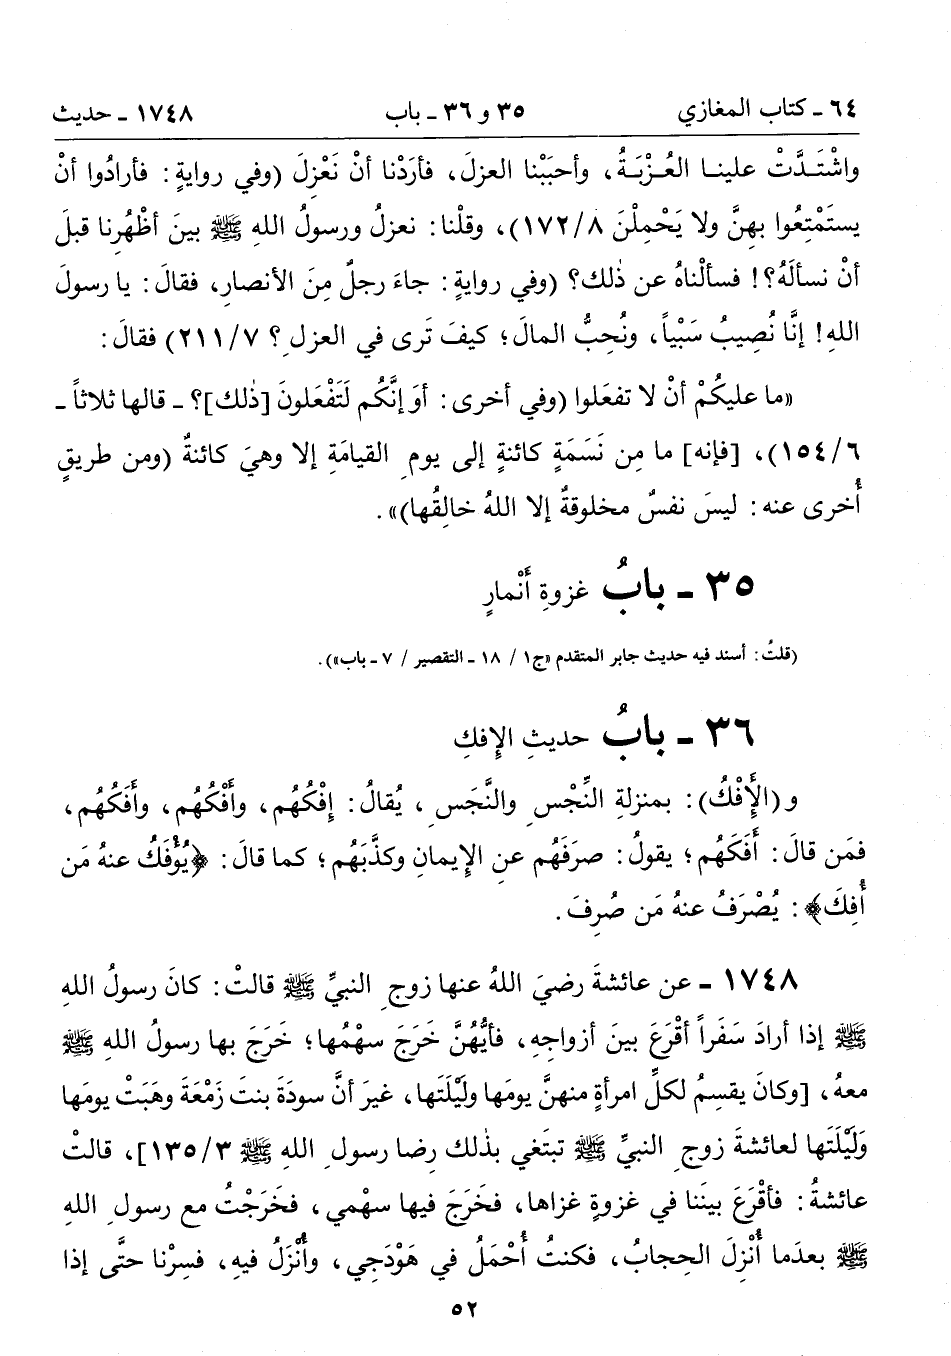 ٦٤ ـ كتاب المغازي ٣٥ و ٣٦ ـ باب ١٧٤٨ ـ حديث
واشْتَـدَّتْ علينـا العُـزْبَـةُ، وأحبَبْنا العزلَ، فأرَدْنا أنْ نَعْزِلَ (وفي روايةٍ: فأرادُوا أنْ
يستَمْتِعُوا بهِنَّ ولا يَحْمِلْنَ ١٧٢/٨)، وقلْنا: نعزلُ ورسولُ اللهِ ﷺ بينَ أظْهُرِنا قبلَ
أنْ نسألَهُ؟! فسألْناهُ عن ذٰلك؟ (وفي روايةٍ: جاءَ رجلٌ مِنَ الأنصارِ، فقالَ: يا رسولَ
اللهِ! إنَّا نُصِيبُ سَبْياً، ونُحِبُّ المالَ؛ كيفَ تَرى في العزلِ؟ ٢١١/٧) فقالَ:
«ما عليكُمْ أنْ لا تفعَلوا (وفي أخرى: أوَ إنَّكُم لَتَفْعَلونَ [ذٰلك]؟ ـ قالها ثلاثاً ـ
١٥٤/٦)، [فإنه] ما مِن نَسَمَةٍ كائنةٍ إلى يومِ القيامَةِ إلا وهيَ كائنةٌ (ومن طريقٍ
أُخرى عنه: ليسَ نفسٌ مخلوقةٌ إلا اللهُ خالِقُها)».
٣٥ ـ بابُ غزوةِ أنْمارٍ
(قلتُ: أسند فيه حديث جابر المتقدم «ج١ / ١٨ ـ التقصير / ٧ ـ باب»).
٣٦ ـ بابُ حديثِ الإفكِ
و (الإِفْكُ): بمنزلةِ النِّجْسِ والنَّجَسِ، يُقالُ: إفْكُهُم، وأَفْكُهُم، وأَفَكُهُم،
فمَن قالَ: أَفَكَهُم؛ يقولُ: صرَفَهُم عنِ الإيمانِ وكذَّبَهُم؛ كما قالَ: ﴿يُؤْفَكُ عنهُ مَن
أُفِكَ﴾: يُصْرَفُ عنهُ مَن صُرِفَ.
١٧٤٨ ـ عن عائشةَ رضيَ اللهُ عنها زوجِ النبيِّ ﷺ قالتْ: كانَ رسولُ اللهِ
ﷺ إذا أرادَ سَفَراً أقْرَعَ بينَ أزواجِهِ، فأيُّهُنَّ خَرَجَ سهْمُها؛ خَرَجَ بها رسولُ اللهِ ﷺ
معهُ، [وكانَ يقسِمُ لكلِّ امرأةٍ منهنَّ يومَها ولَيْلَتَها، غيرَ أنَّ سودَةَ بنتَ زَمْعَةَ وهَبَتْ يومَها
وَلَيْلَتَها لعائشةَ زوجِ النبيِّ ﷺ تبتَغي بذٰلك رِضا رسولِ اللهِ ﷺ ١٣٥/٣]، قالتْ
عائشةُ: فأقْرَعَ بينَنا في غزوةٍ غزاها، فخَرَجَ فيها سهْمي، فخَرَجْتُ مع رسولِ اللهِ
ﷺ بعدَما أُنْزِلَ الحِجابُ، فكنتُ أُحْمَلُ في هَوْدَجِي، وأُنْزَلُ فيهِ، فسِرْنا حتَّى إذا
٥٢